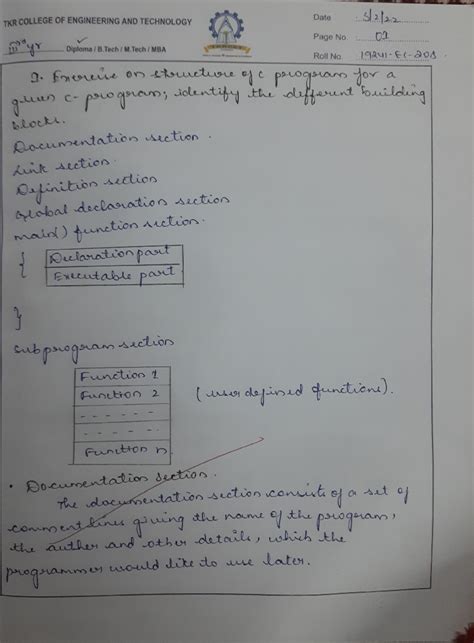 TKR COLLEGE OF ENGINEERING AND TECHNOLOGY
IIIrd yr Diploma / B.Tech / M.Tech / MBA
Date 5/2/22
Page No. 01
Roll No.
1. Exercise on structure of C program for a
given C- program; identify the different building
blocks.
Documentation section.
Link section.
Definition section
Global declaration section
main() function section.
{
Declaration part
Executable part
}
Subprogram section
Function 1
Function 2
(user defined functions).
- - - - -
- - - - -
Function n
• Documentation section.
The documentation section consists of a set of
comment lines giving the name of the program,
the auther and other details, which the
programmer would like to use later.